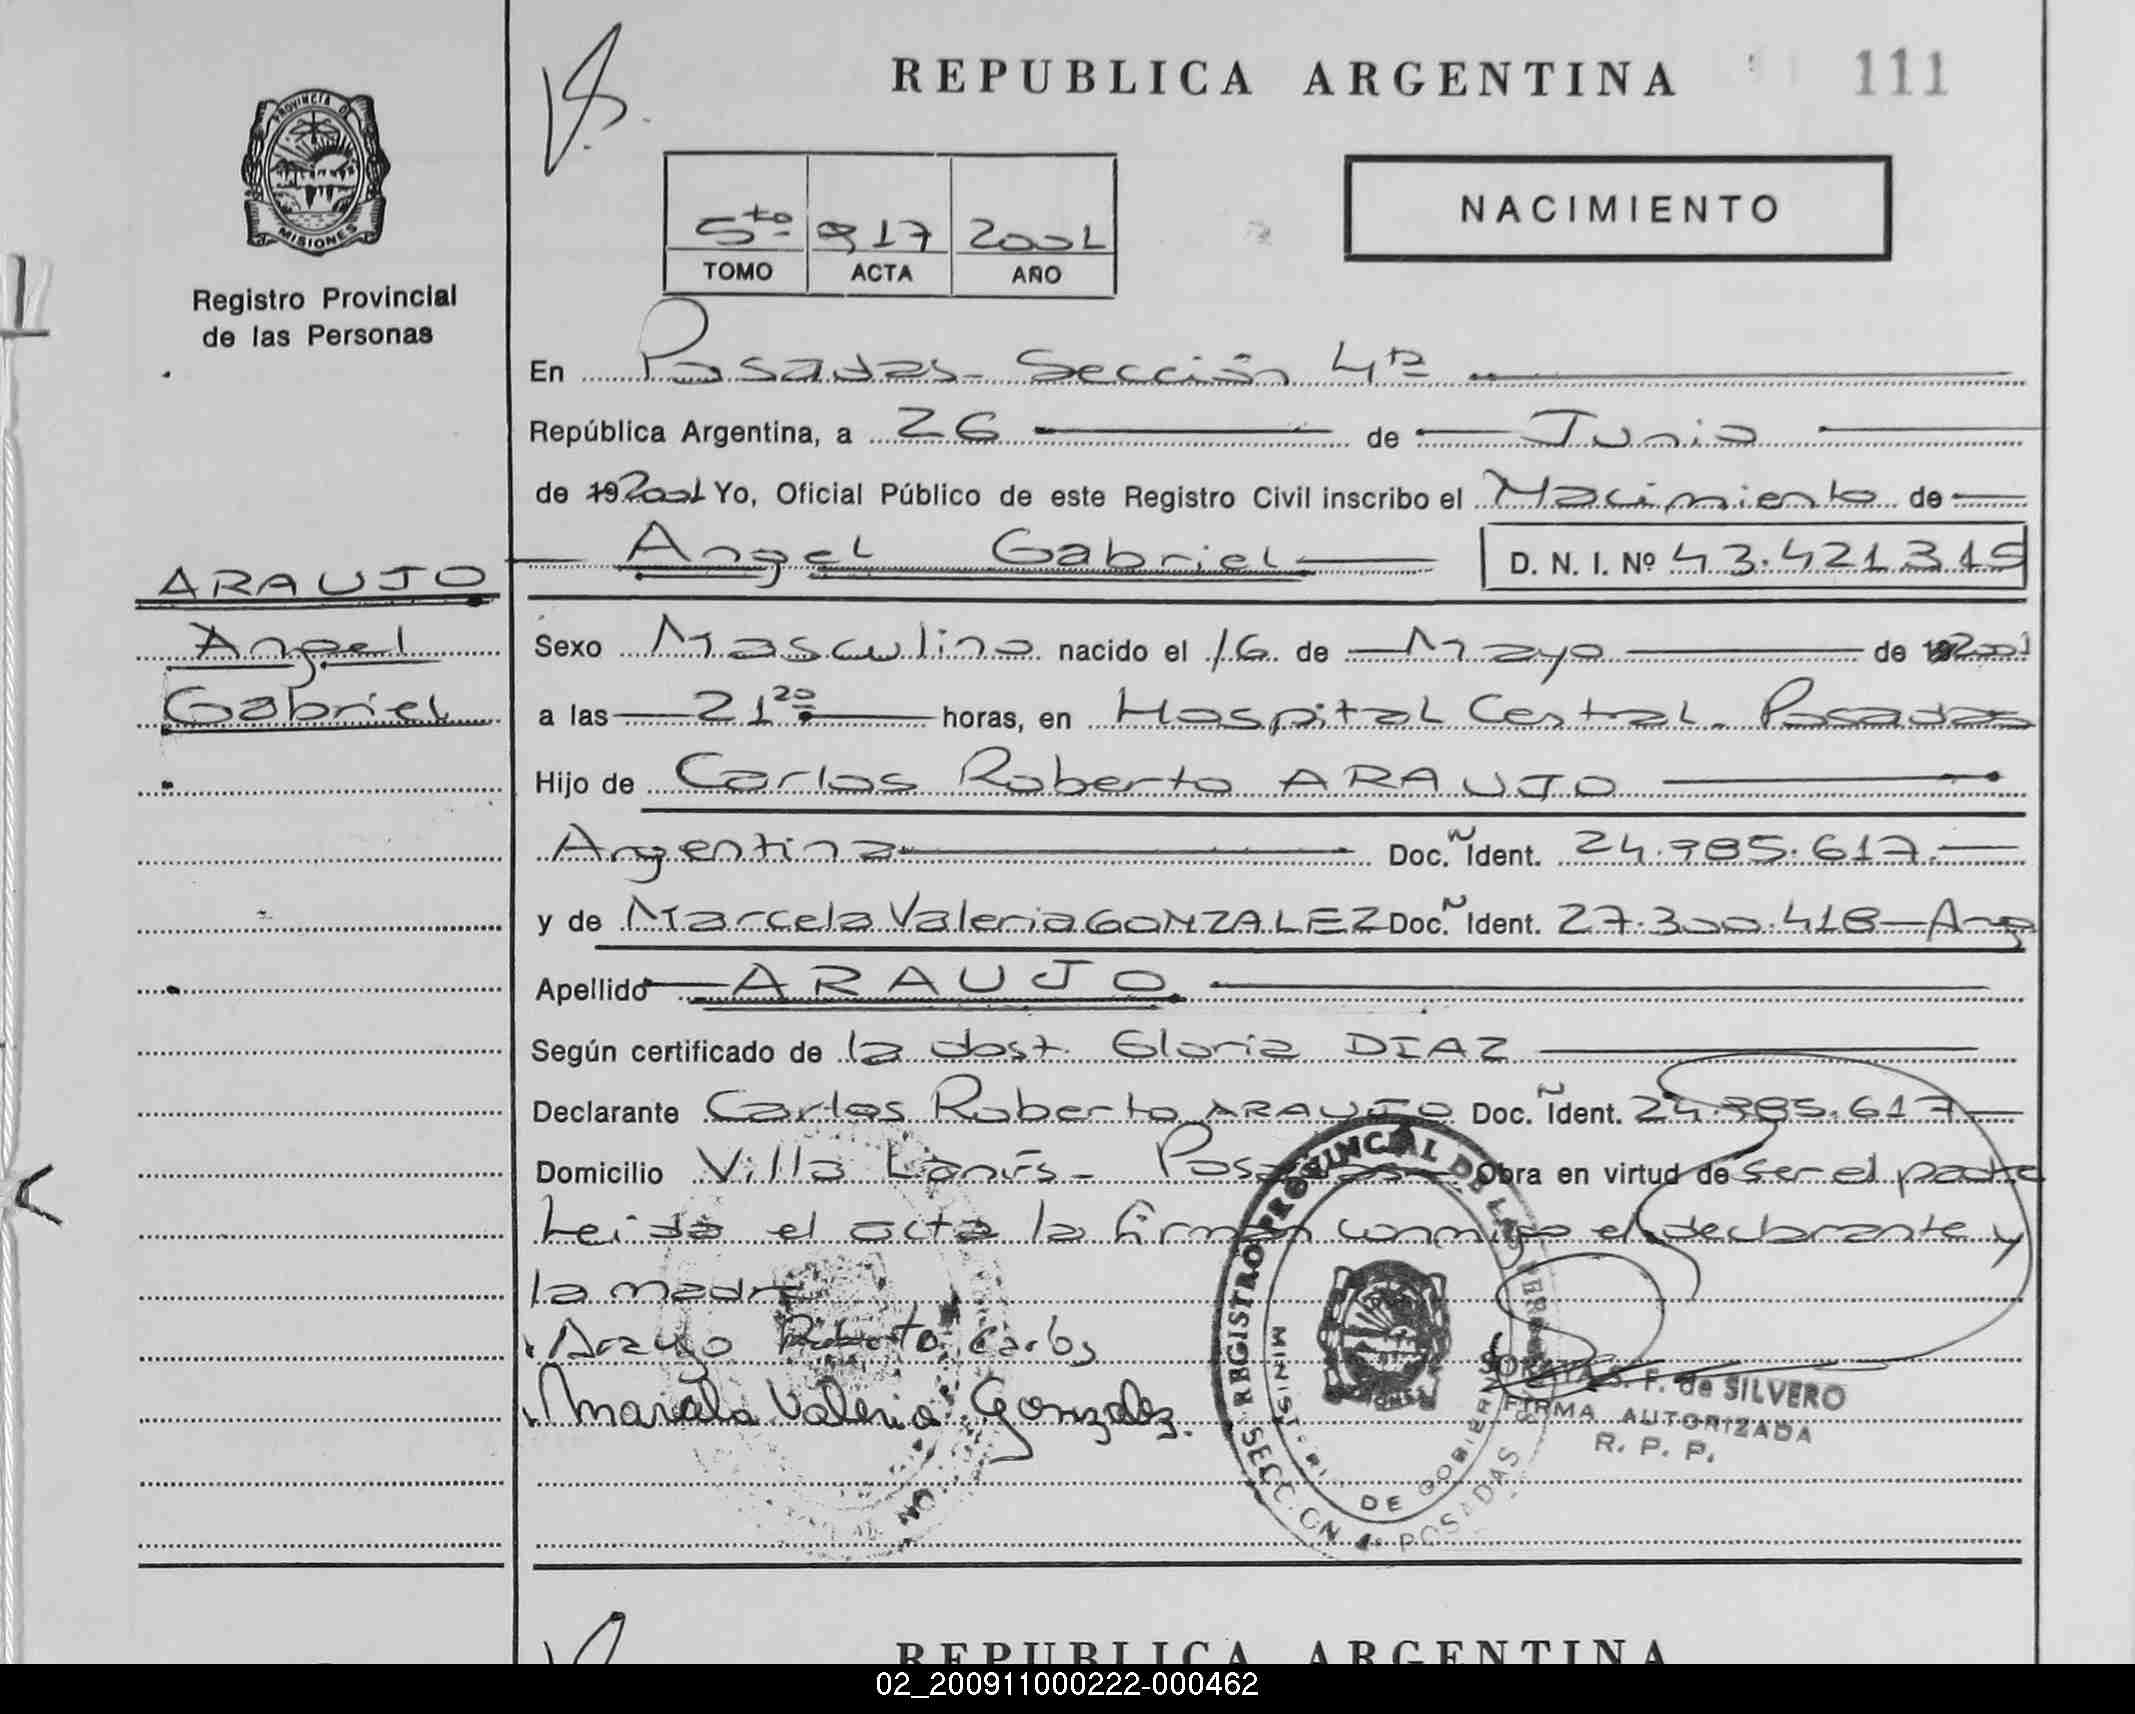 REPUBLICA ARGENTINA
111
PROVINCIA DE
MISIONES
Registro Provincial
de las Personas
5to 917 2001
TOMO ACTA AÑO
NACIMIENTO
En Posadas - Sección 4ta
República Argentina, a 26 de Junio
de 19 2001 Yo, Oficial Público de este Registro Civil inscribo el Nacimiento de
Angel Gabriel D. N. I. Nº 43.421.319
ARAUJO
Angel
Gabriel
Sexo Masculino nacido el 16 de Mayo de 2001
a las 21 20 horas, en Hospital Central - Posadas
Hijo de Carlos Roberto ARAUJO
Argentina Doc. Ñ Ident. 24.985.617.
y de Marcela Valeria GONZALEZ Doc. Ñ Ident. 27.300.418 - Arg
Apellido ARAUJO
Según certificado de la obst. Gloria DIAZ
Declarante Carlos Roberto ARAUJO Doc. Ñ Ident. 24.985.617
Domicilio Villa Lanús - Posadas - Obra en virtud de ser el padre
Leida el acta la firman conmigo el declarante y
la madre
Araujo Roberto Carlos
Marcela Valeria Gonzalez.
REGISTRO PROVINCIAL DE LAS PERSONAS
SECCION 4ª POSADAS
S. F. de SILVERO
FIRMA AUTORIZADA
R. P. P.
REPUBLICA ARGENTINA
02_200911000222-000462